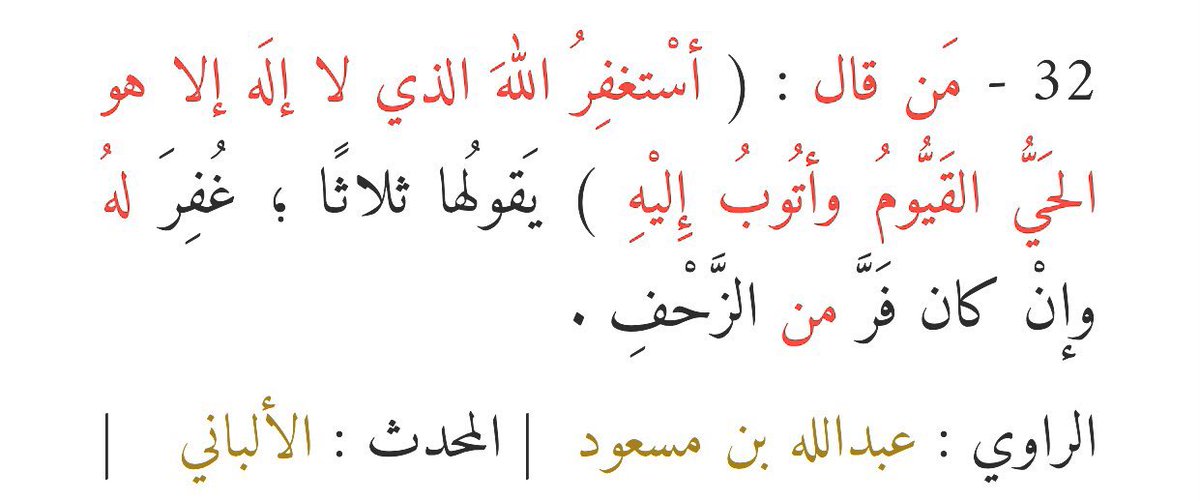 32 - مَن قال : ( أسْتغفِرُ اللهَ الذي لا إلَه إلا هو
الحَيَُّ القَيَُّومُ وأتُوبُ إِليْهِ ) يَقولُها ثلاثًا ؛ غُفِرَ لهُ
وإِنْ كان فَرَّ من الزَّحْفِ .
الراوي : عبدالله بن مسعود | المحدث : الألباني |